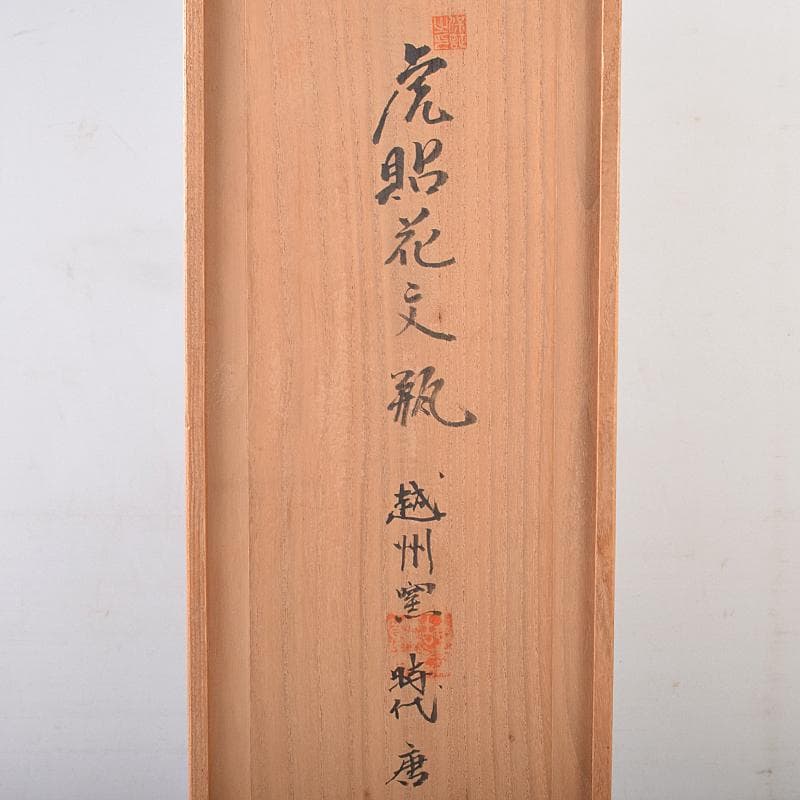 虎貼花文瓶 越州窯 時代 唐